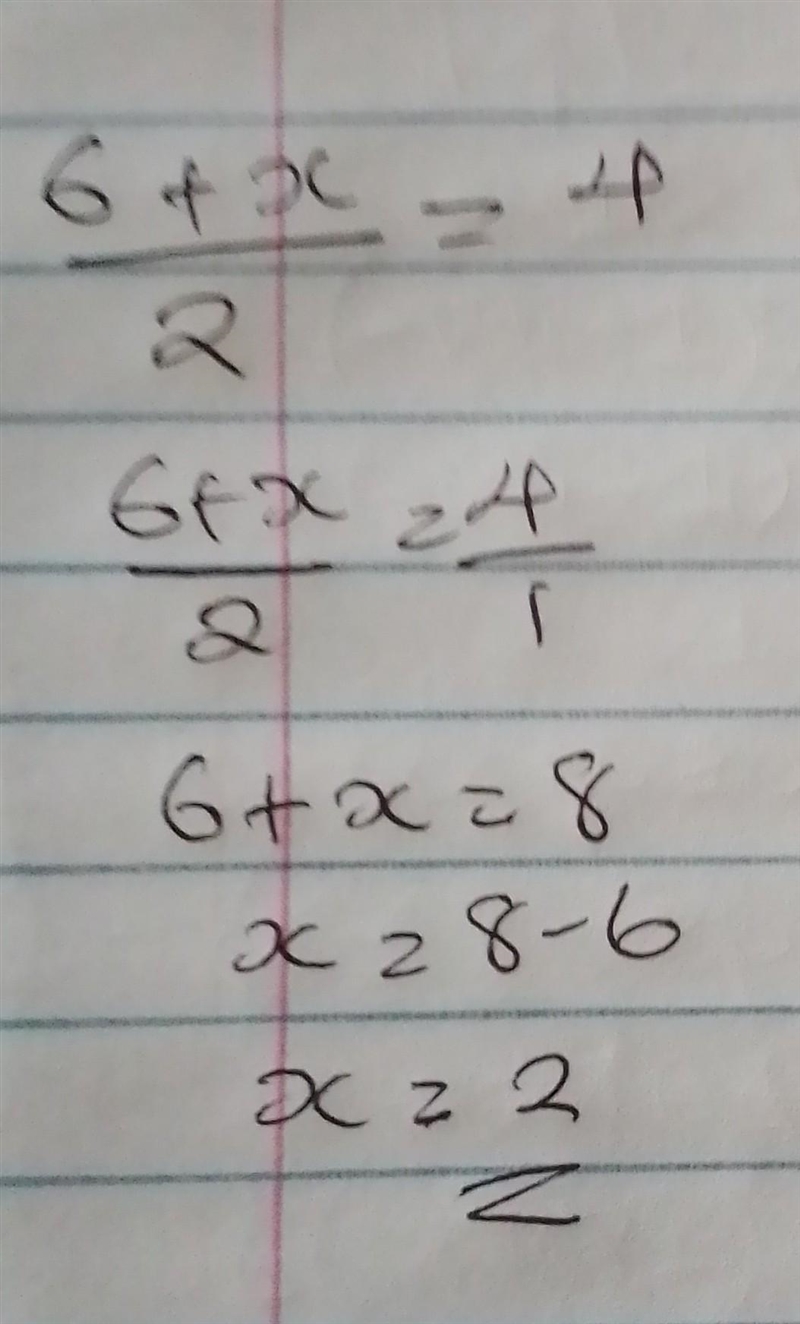 6 + x
—— = 4
2
6+x = 4
—— ——
2 1
6+x = 8
x = 8-6
x = 2